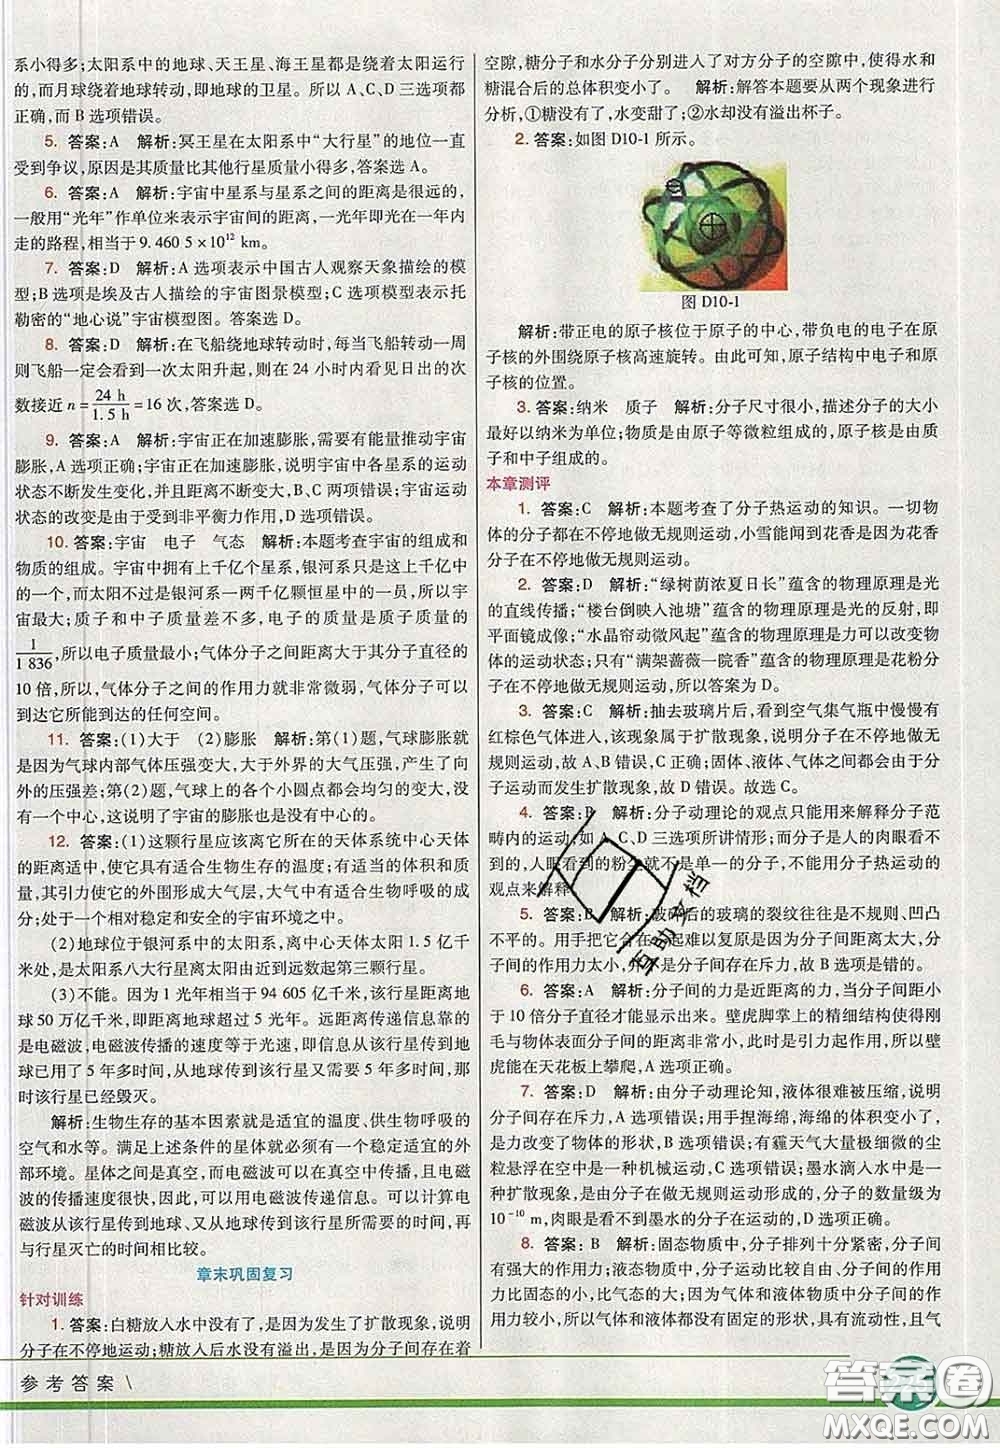 系小得多;太阳系中的地球、天王星、海王星都是绕着太阳运行
的,而月球绕着地球转动,即地球的卫星。所以 A、C、D 三选项都
正确,而 B 选项错误。
5. 答案:A 解析:冥王星在太阳系中“大行星”的地位一直
受到争议,原因是其质量比其他行星质量小得多,答案选 A。
6. 答案:A 解析:宇宙中星系与星系之间的距离是很远的,
一般用“光年”作单位来表示宇宙间的距离,一光年即光在一年内
走的路程,相当于 9.460 5×10¹² km。
7. 答案:D 解析:A 选项表示中国古人观察天象描绘的模
型;B 选项是埃及古人描绘的宇宙图景模型;C 选项模型表示托
勒密的“地心说”宇宙模型图。答案选 D。
8. 答案:D 解析:在飞船绕地球转动时,每当飞船转动一周
则飞船一定会看到一次太阳升起,则在 24 小时内看见日出的次
数接近 n=24 h/1.5 h=16 次,答案选 D。
9. 答案:A 解析:宇宙正在加速膨胀,需要有能量推动宇宙
膨胀,A 选项正确;宇宙正在加速膨胀,说明宇宙中各星系的运动
状态不断发生变化,并且距离不断变大,B、C 两项错误;宇宙运动
状态的改变是由于受到非平衡力作用,D 选项错误。
10. 答案:宇宙 电子 气态 解析:本题考查宇宙的组成和
物质的组成。宇宙中拥有上千亿个星系,银河系只是这上千亿中
的一个,而太阳不过是银河系一两千亿颗恒星中的一员,所以宇
宙最大;质子和中子质量差不多,电子的质量是质子质量的
1/1 836,所以电子质量最小;气体分子之间的距离大于其分子直径的
10 倍,所以,气体分子之间的作用力就非常微弱,气体分子可以
到达它所能到达的任何空间。
11. 答案:(1)大于 (2)膨胀 解析:第(1)题,气球膨胀就
是因为气球内部气体压强变大,大于外界的大气压强,产生了向
外的压强差;第(2)题,气球上的各个小圆点都会均匀的变大,没
有一个中心,这说明了宇宙的膨胀也是没有中心的。
12. 答案:(1)这颗行星应该离它所在的天体系统中心天体
的距离适中,使它具有适合生物生存的温度;有适当的体积和质
量,其引力使它的外围形成大气层,大气中有适合生物呼吸的成
分;处于一个相对稳定和安全的宇宙环境之中。
(2)地球位于银河系中的太阳系,距离中心天体太阳 1.5 亿千
米处,是太阳系八大行星离太阳由近到远数起第三颗行星。
(3)不能。因为 1 光年相当于 94 605 亿千米,该行星距离地
球 50 万亿千米,即距离地球超过 5 光年。远距离传递信息靠的
是电磁波,电磁波传播的速度等于光速,即信息从该行星传到地
球已用了 5 年多时间,而再从地球传到该行星又用 5 年多时间,
该行星已经毁灭。
解析:生物生存的基本因素就是适宜的温度、供生物呼吸的
空气和水等。满足上述条件的星体就必须有一个稳定适宜的外
部环境。星体之间是真空,而电磁波可以在真空中传播,且电磁
波的传播速度非常大,因此,可以用电磁波传递信息。可以计算电
磁波从该行星传到地球、又从地球传到该行星所需要的时间,再
与行星灭亡的时间相比较。
章末巩固复习
针对训练
1. 答案:白糖放入水中没有了,是因为发生了扩散现象,说明
分子在不停地运动;糖放入后水没有溢出,是因为分子间存在着
空隙,糖分子和水分子分别进入了对方分子的空隙中,使得水和
糖混合后的总体积变小了。 解析:解答本题要从两个现象进行
分析,①糖没有了,水变甜了;②水却没有溢出杯子。
2. 答案:如图 D10-1 所示。
图 D10-1
解析:带正电的原子核位于原子的中心,带负电的电子在原
子核的外围绕原子核高速旋转。由此可知,原子结构中电子和原
子核的位置。
3. 答案:纳米 质子 解析:分子尺寸很小,描述分子的大小
最好以纳米为单位;物质是由原子等微粒组成的,原子核是由质
子和中子组成的。
本章测评
1. 答案:C 解析:本题考查了分子热运动的知识。一切物
体的分子都在不停地做无规则运动,小雪能闻到花香是因为花香
分子在不停地做无规则运动。
2. 答案:D 解析:“绿树荫浓夏日长”蕴含的物理原理是光
的直线传播;“楼台倒映入池塘”蕴含的物理原理是光的反射,即
平面镜成像;“水晶帘动微风起”蕴含的物理原理是力可以改变物
体的运动状态;只有“满架蔷薇一院香”蕴含的物理原理是花粉分
子在不停地做无规则运动,所以答案为 D。
3. 答案:C 解析:抽去玻璃片后,看到空气集气瓶中慢慢有
红棕色气体进入,该现象属于扩散现象,说明分子在不停地做无
规则运动,故 A、B 错误,C 正确;固体、液体、气体之间都能由于分
子运动而发生扩散现象,故 D 错误。故选 C。
4. 答案:B 解析:分子动理论的观点只能用来解释分子范
畴内的运动,如 A、C、D 三选项所讲情形;而分子是人的肉眼看不
到的,人眼看到的粉尘就不是单一的分子,不能用分子热运动的
观点来解释。
5. 答案:B 解析:破碎后的玻璃的裂纹往往是不规则、凹凸
不平的。用手把它合在一起难以复原是因为分子间距离太大,分
子间的作用力太小,并不是分子间存在斥力,故 B 选项是错误的。
6. 答案:A 解析:分子间的力是近距离的力,当分子间距小
于 10 倍分子直径才能显示出来。壁虎脚掌上的精细结构使得刚
毛与物体表面分子间的距离非常小,其实就是引力起作用,所以壁
虎能在天花板上攀爬,A 选项正确。
7. 答案:D 解析:由分子动理论知,液体很难被压缩,说明
分子间存在斥力,A 选项错误;用手捏海绵,海绵的体积变小了,
是力改变了物体的形状,B 选项错误;有霾天气大量极细微的尘
粒悬浮在空中是一种机械运动,C 选项错误;墨水滴入水中是一
种扩散现象,是由分子在做无规则运动形成的,分子的数量级为
10⁻¹⁰ m,肉眼是看不到墨水的分子在运动的,D 选项正确。
8. 答案:B 解析:固态物质中,分子排列十分紧密,分子间
有强大的作用力;液态物质中,分子运动较自由,粒子间的作用力
比固体的小;气态物质中,分子间距很大,并以高速向四面八方运动,分子间作
用力较小,所以气体和液体都没有固定的形状,具有流动性,且气
参考答案 \
答案圈
MXQE.COM